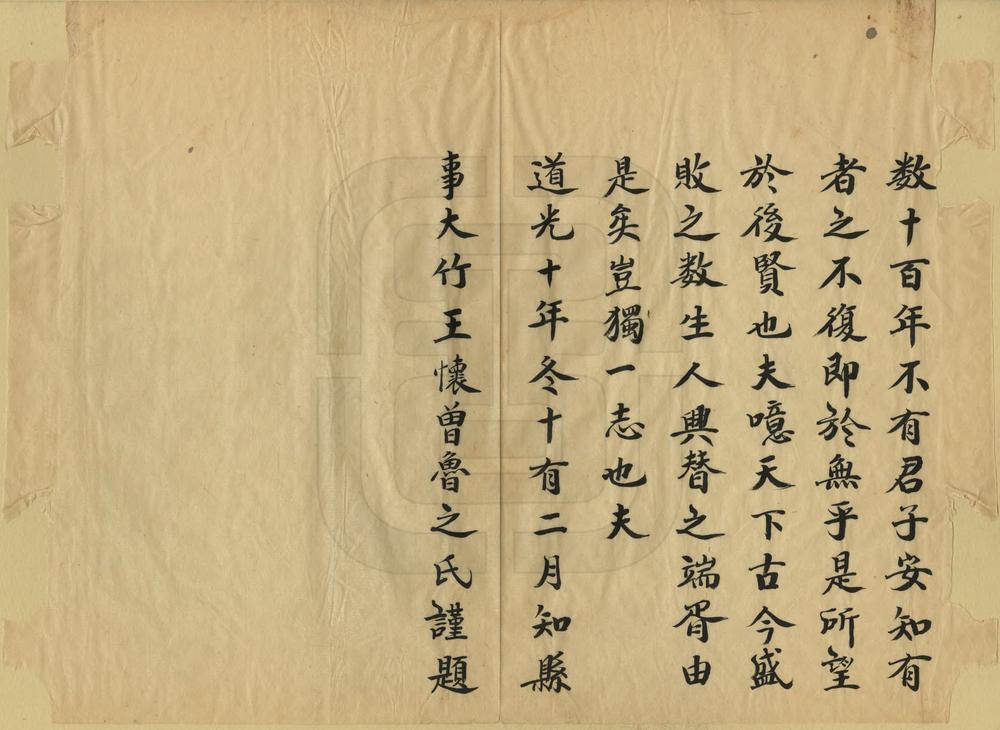 数十百年不有君子安知有
者之不復即於無乎是所望
於後賢也夫噫天下古今盛
敗之数生人興替之端胥由
是矣豈獨一志也夫
道光十年冬十有二月知縣
事大竹王懷曽魯之氏謹題